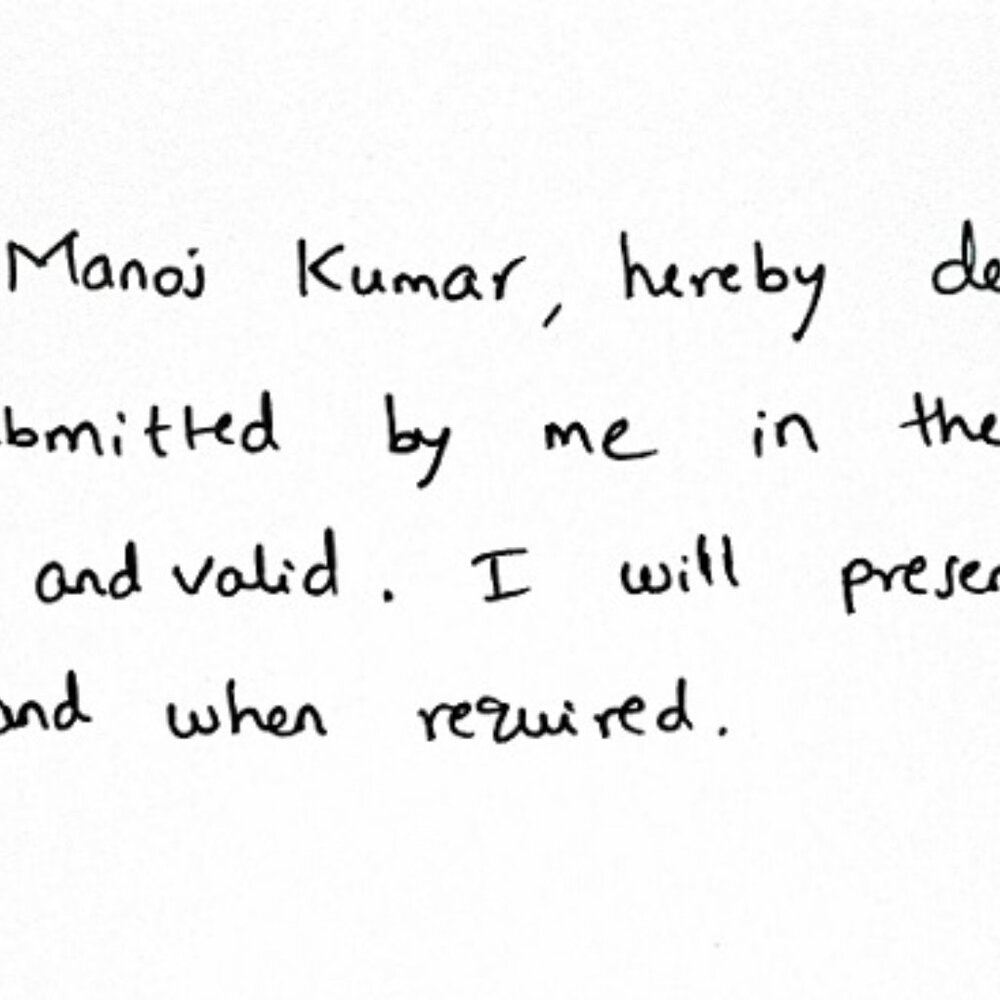 Manoj Kumar, hereby de
bmitted by me in the
and valid. I will presen
and when required.